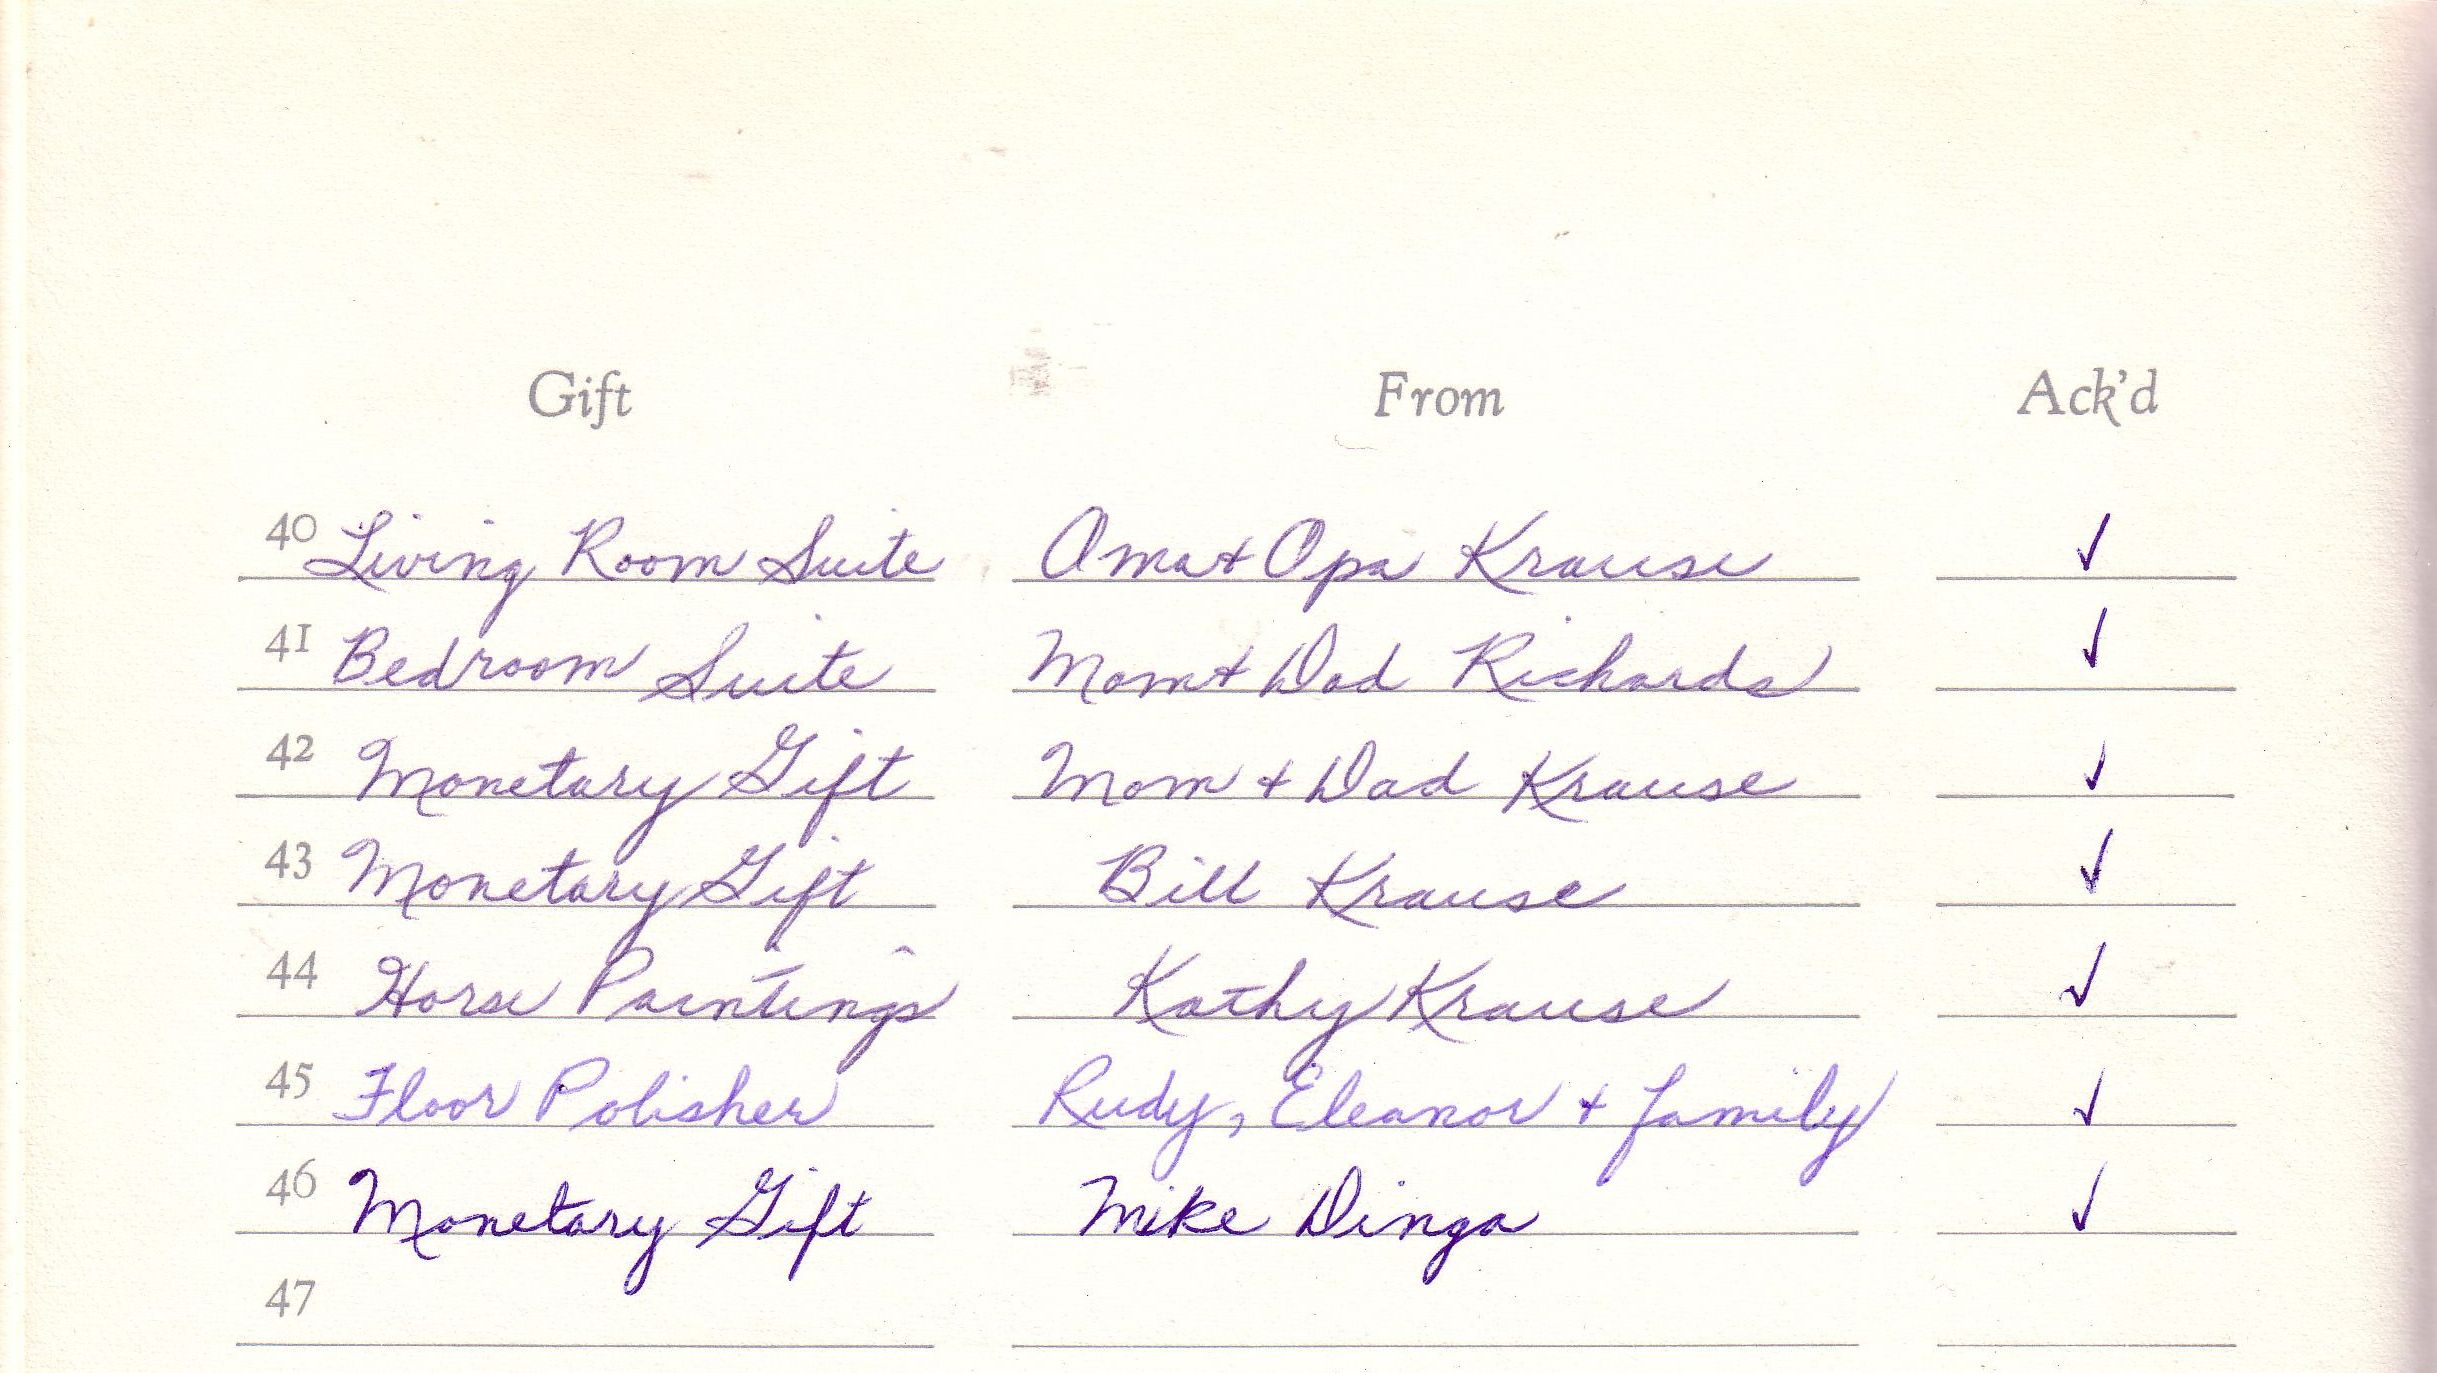 Gift From Ack'd
40 Living Room Suite Oma + Opa Krause ✓
41 Bedroom Suite Mom + Dad Richards ✓
42 Monetary Gift Mom + Dad Krause ✓
43 Monetary Gift Bill Krause ✓
44 Horse Paintings Kathy Krause ✓
45 Floor Polisher Rudy, Eleanor + family ✓
46 Monetary Gift Mike Dinga ✓
47